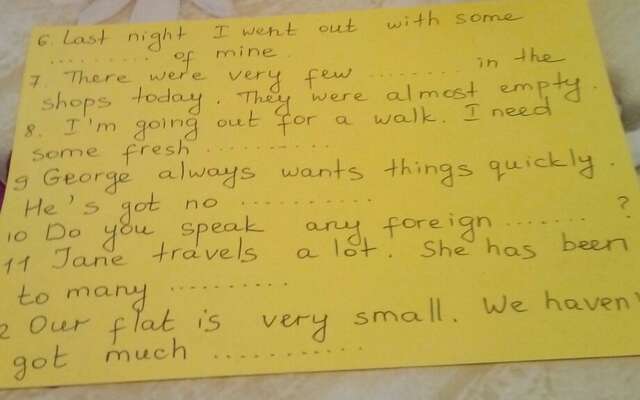 6. Last night I went out with some
.......... of mine.
7. There were very few ........ in the
shops today. They were almost empty.
8. I'm going out for a walk. I need
some fresh ..........
9 George always wants things quickly.
He's got no ..........
10 Do you speak any foreign ....... ?
11 Jane travels a lot. She has been
to many ..........
2 Our flat is very small. We haven'
got much ...........